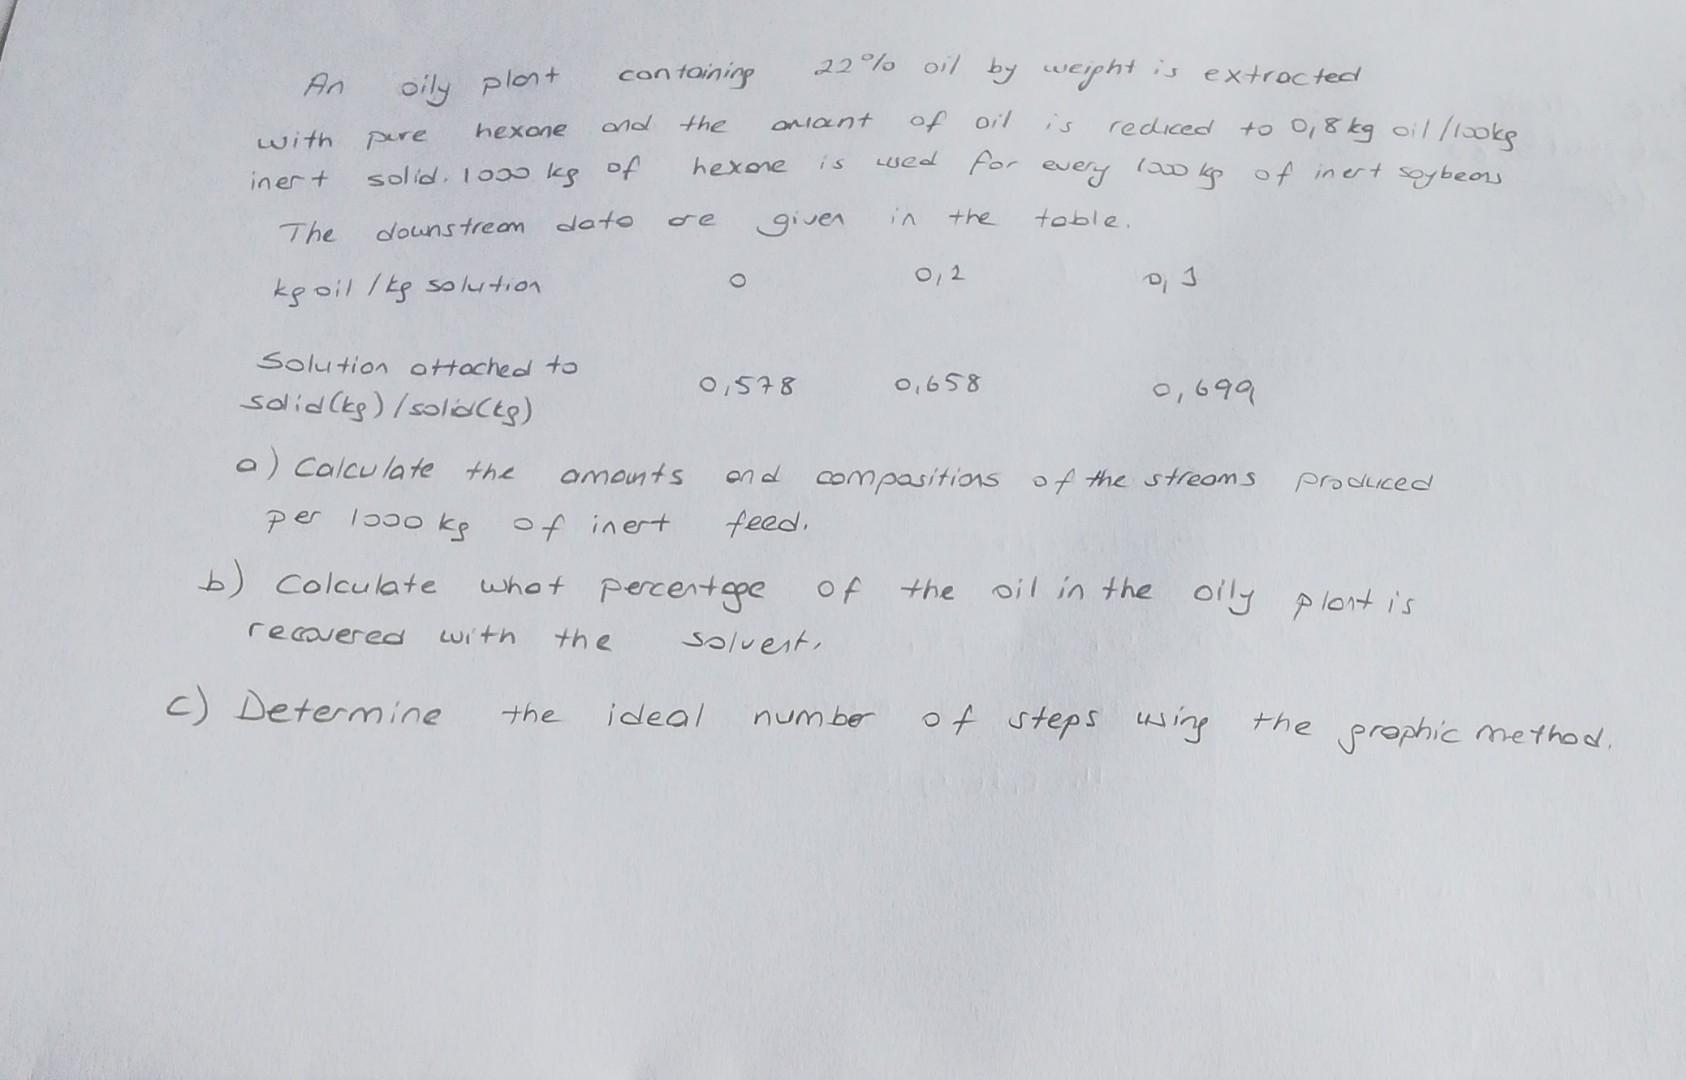 An oily plant containing 22% oil by weight is extracted
with pure hexane and the amount of oil is reduced to 0,8 kg oil/100kg
inert solid. 1000 kg of hexane is used for every 1000 kg of inert soybeans
The downstream data are given in the table.
kg oil / kg solution 0 0,2 0,3
Solution attached to
solid(kg)/solid(kg) 0,578 0,658 0,699
a) Calculate the amounts and compositions of the streams produced
per 1000 kg of inert feed.
b) Calculate what percentage of the oil in the oily plant is
recovered with the solvent.
c) Determine the ideal number of steps using the graphic method.